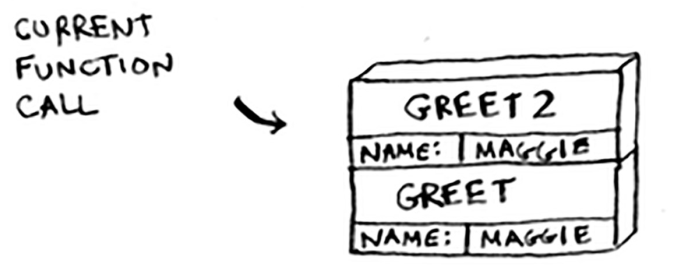 CURRENT
FUNCTION
CALL
GREET 2
NAME: MAGGIE
GREET
NAME: MAGGIE